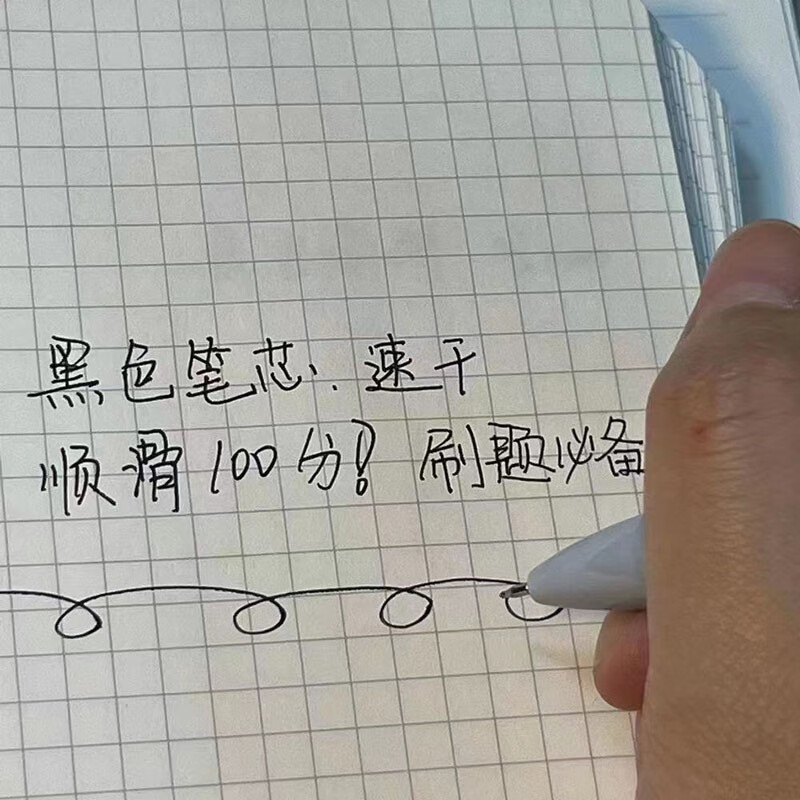 黑色笔芯、速干
顺滑100分！刷题必备